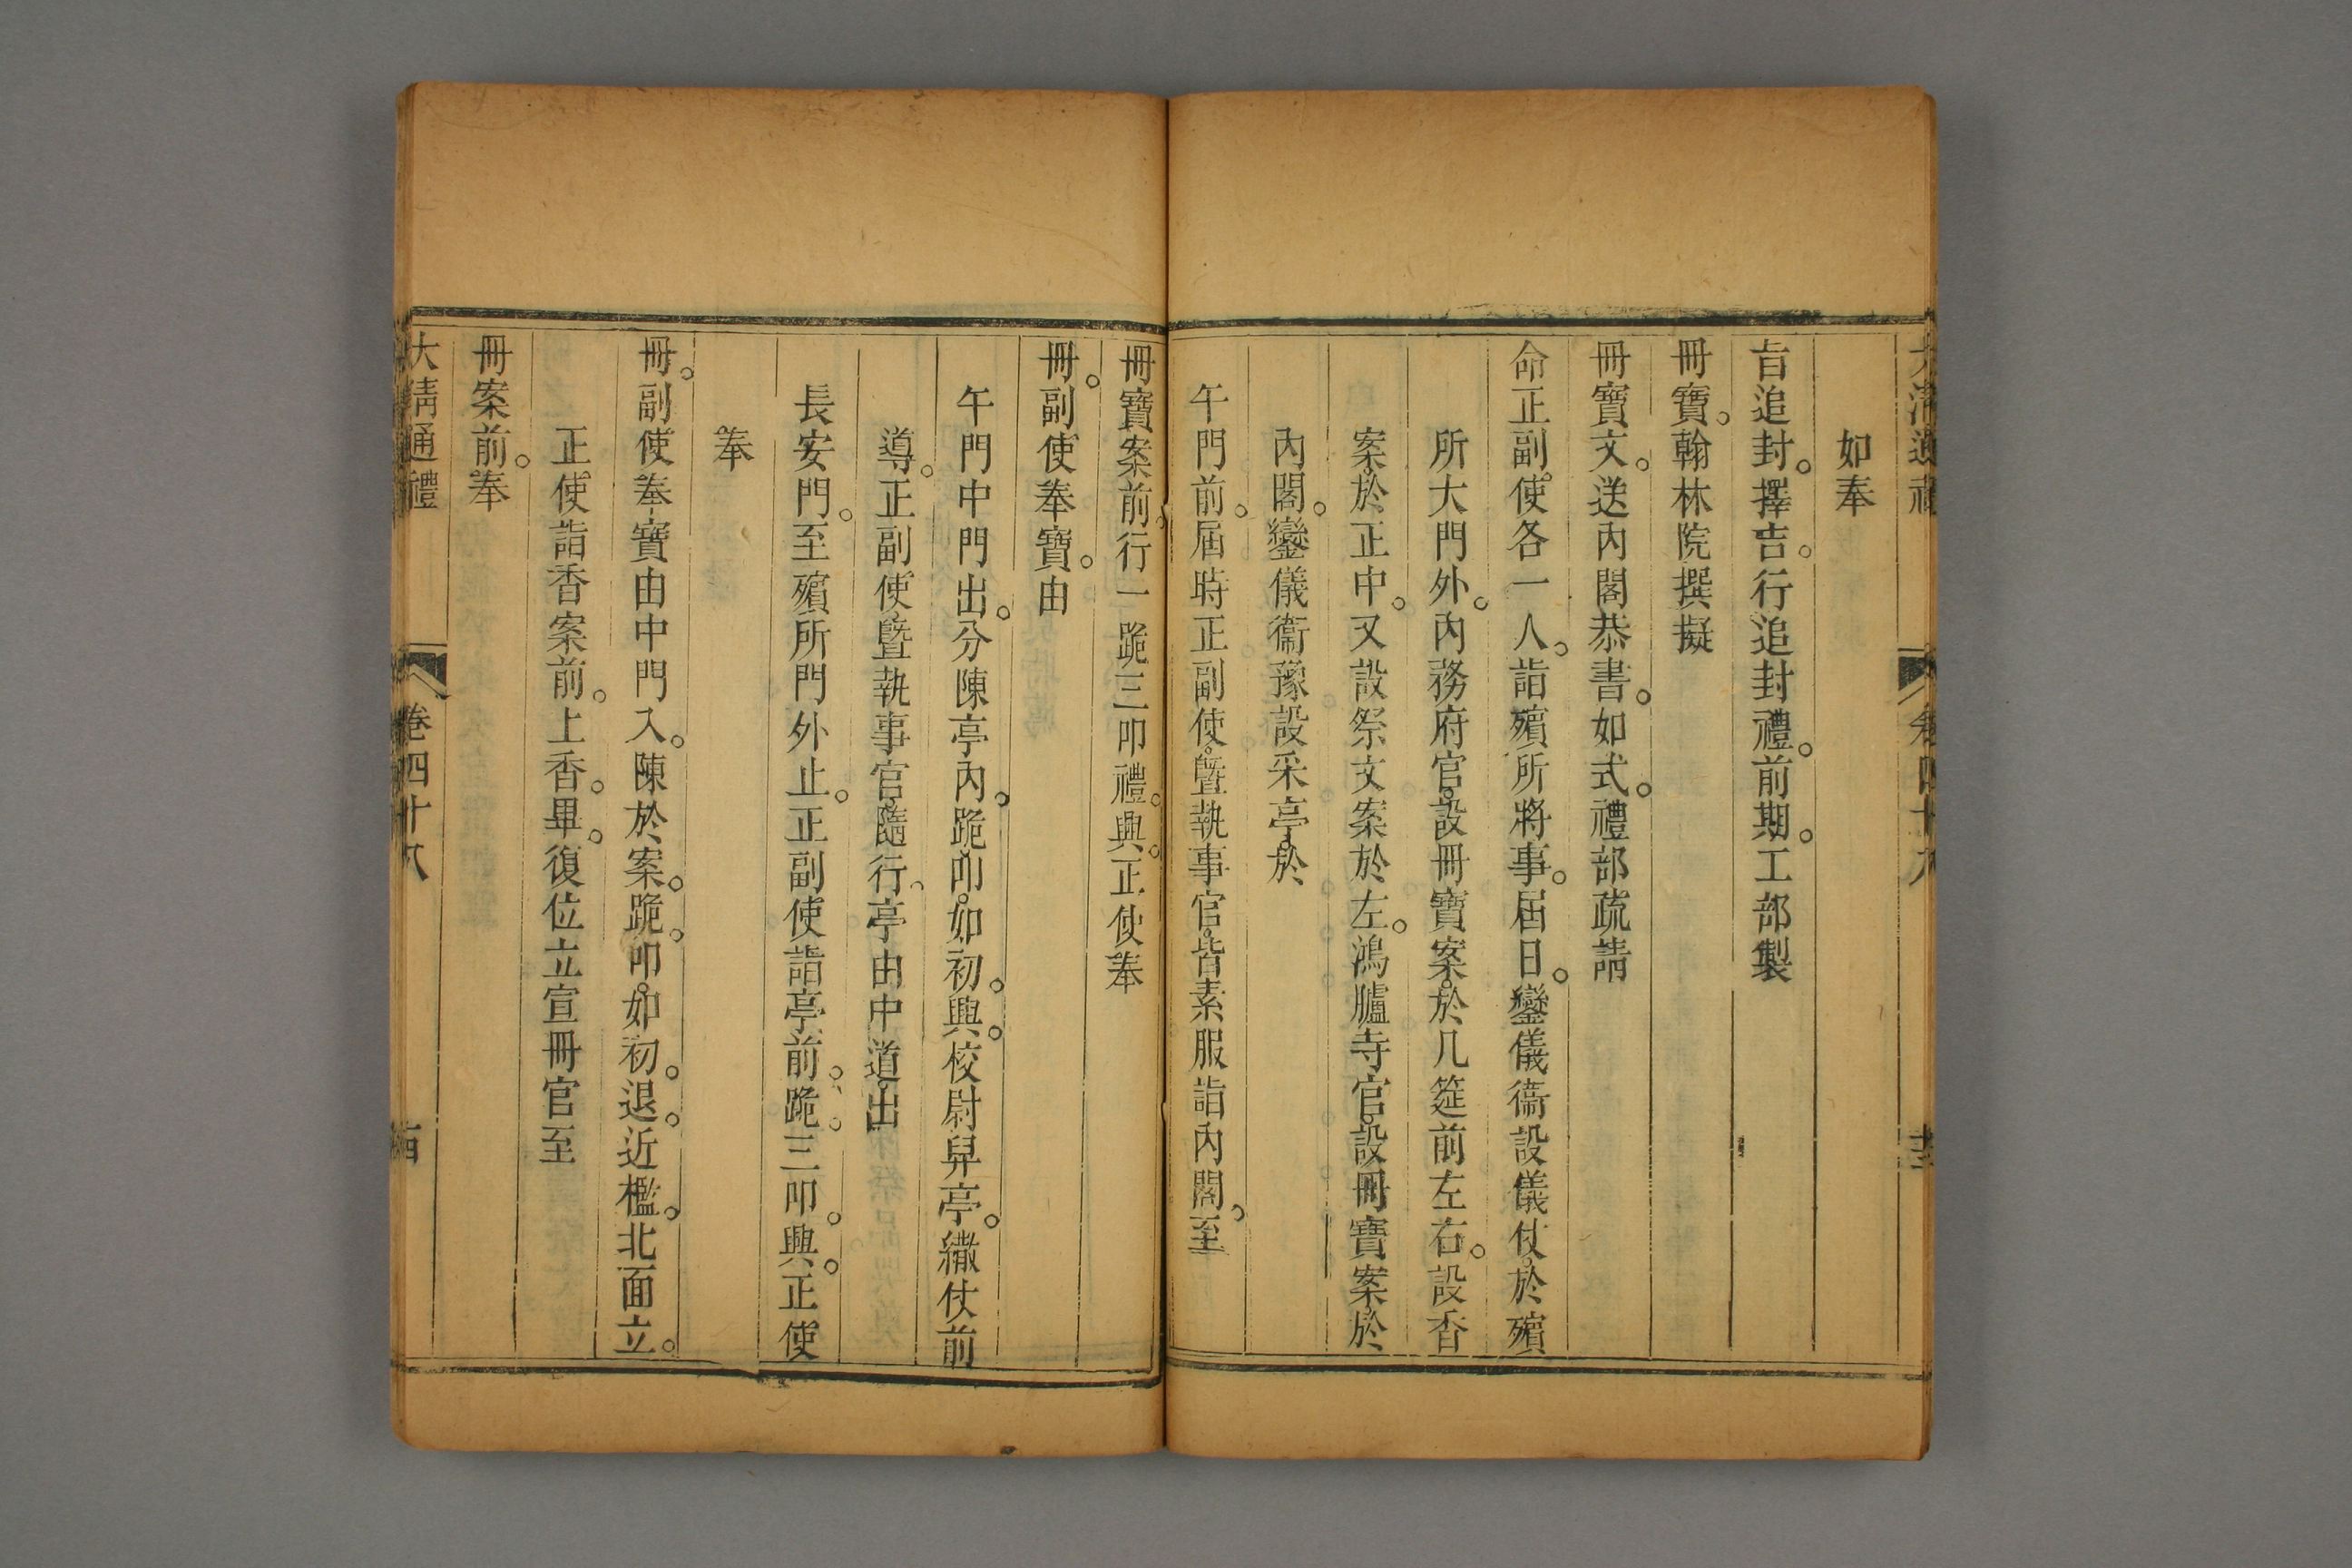 大清通禮 卷四十八
如奉
旨追封。擇吉。行追封禮。前期。工部製
冊寶。翰林院撰擬
冊寶文。送內閣恭書。如式。禮部疏請
命正副使各一人。詣殯所將事。屆日。鑾儀衞設儀仗。於殯
所大門外。內務府官。設冊寶案。於几筵前左右。設香
案。於正中。又設祭文案於左。鴻臚寺官。設冊寶案。於
內閣。鑾儀衞豫設采亭。於
午門前。屆時正副使。曁執事官。皆素服詣內閣。至
冊寶案前。行一跪三叩禮。興。正使奉
冊。副使奉寶。由
午門中門出。分陳亭內。跪。叩。如初。興。校尉舁亭。繖仗前
導。正副使曁執事官。隨行。亭由中道。出
長安門。至殯所門外止。正副使詣亭前。跪。三叩。興。正使
奉
冊。副使奉寶由中門入。陳於案。跪。叩。如初。退。近檻。北面立。
正使詣香案前。上香。畢。復位立宣冊官至
冊案前。奉
大清通禮 卷四十八